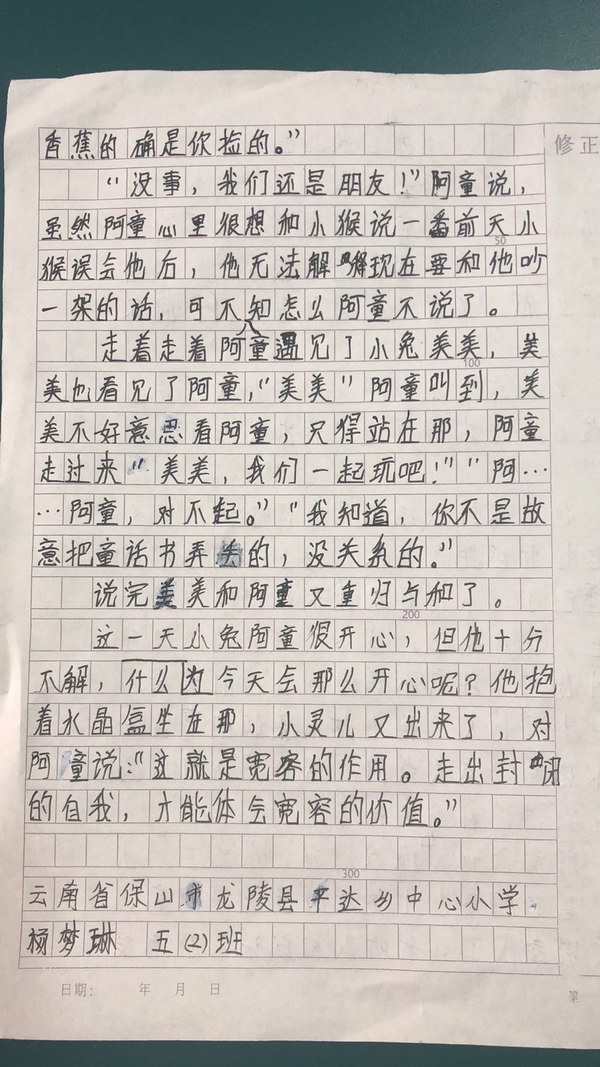 香蕉的确是你捡的。”
修正
“没事，我们还是朋友！”阿童说，
虽然阿童心里很想和小猴说一番前天小
猴误会他后，他无法解 现在要和他吵
50
一架的话，可不知怎么阿童不说了。
走着走着阿童遇见了小兔美美，美
100
美也看见了阿童，“美美”阿童叫到，美
美不好意思看阿童，只得站在那，阿童
走过来“美美，我们一起玩吧！”“阿…
…阿童，对不起。”“我知道，你不是故
意把童话书弄丢的，没关系的。”
说完美美和阿童又重归与和了。
200
这一天小兔阿童很开心，但他十分
不解，什么为今天会那么开心呢？他抱
着水晶盒坐在那，小灵儿又出来了，对
阿童说：“这就是宽容的作用。走出封闭
的自我，才能体会宽容的价值。”
300
云南省保山市龙陵县平达乡中心小学
杨梦琳 五(2)班
日期： 年 月 日
第